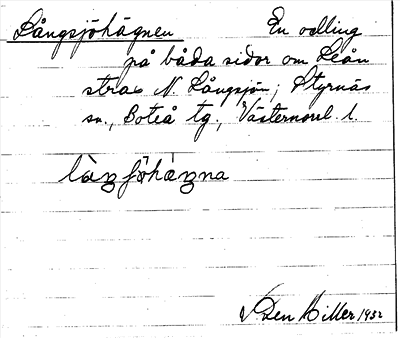 Långsjöhägnen En odling
på båda sidor om Leån
strax N. Långsjön; Styrnäs
sn., Boteå tg., Västernorrl. l.
Miller 1932